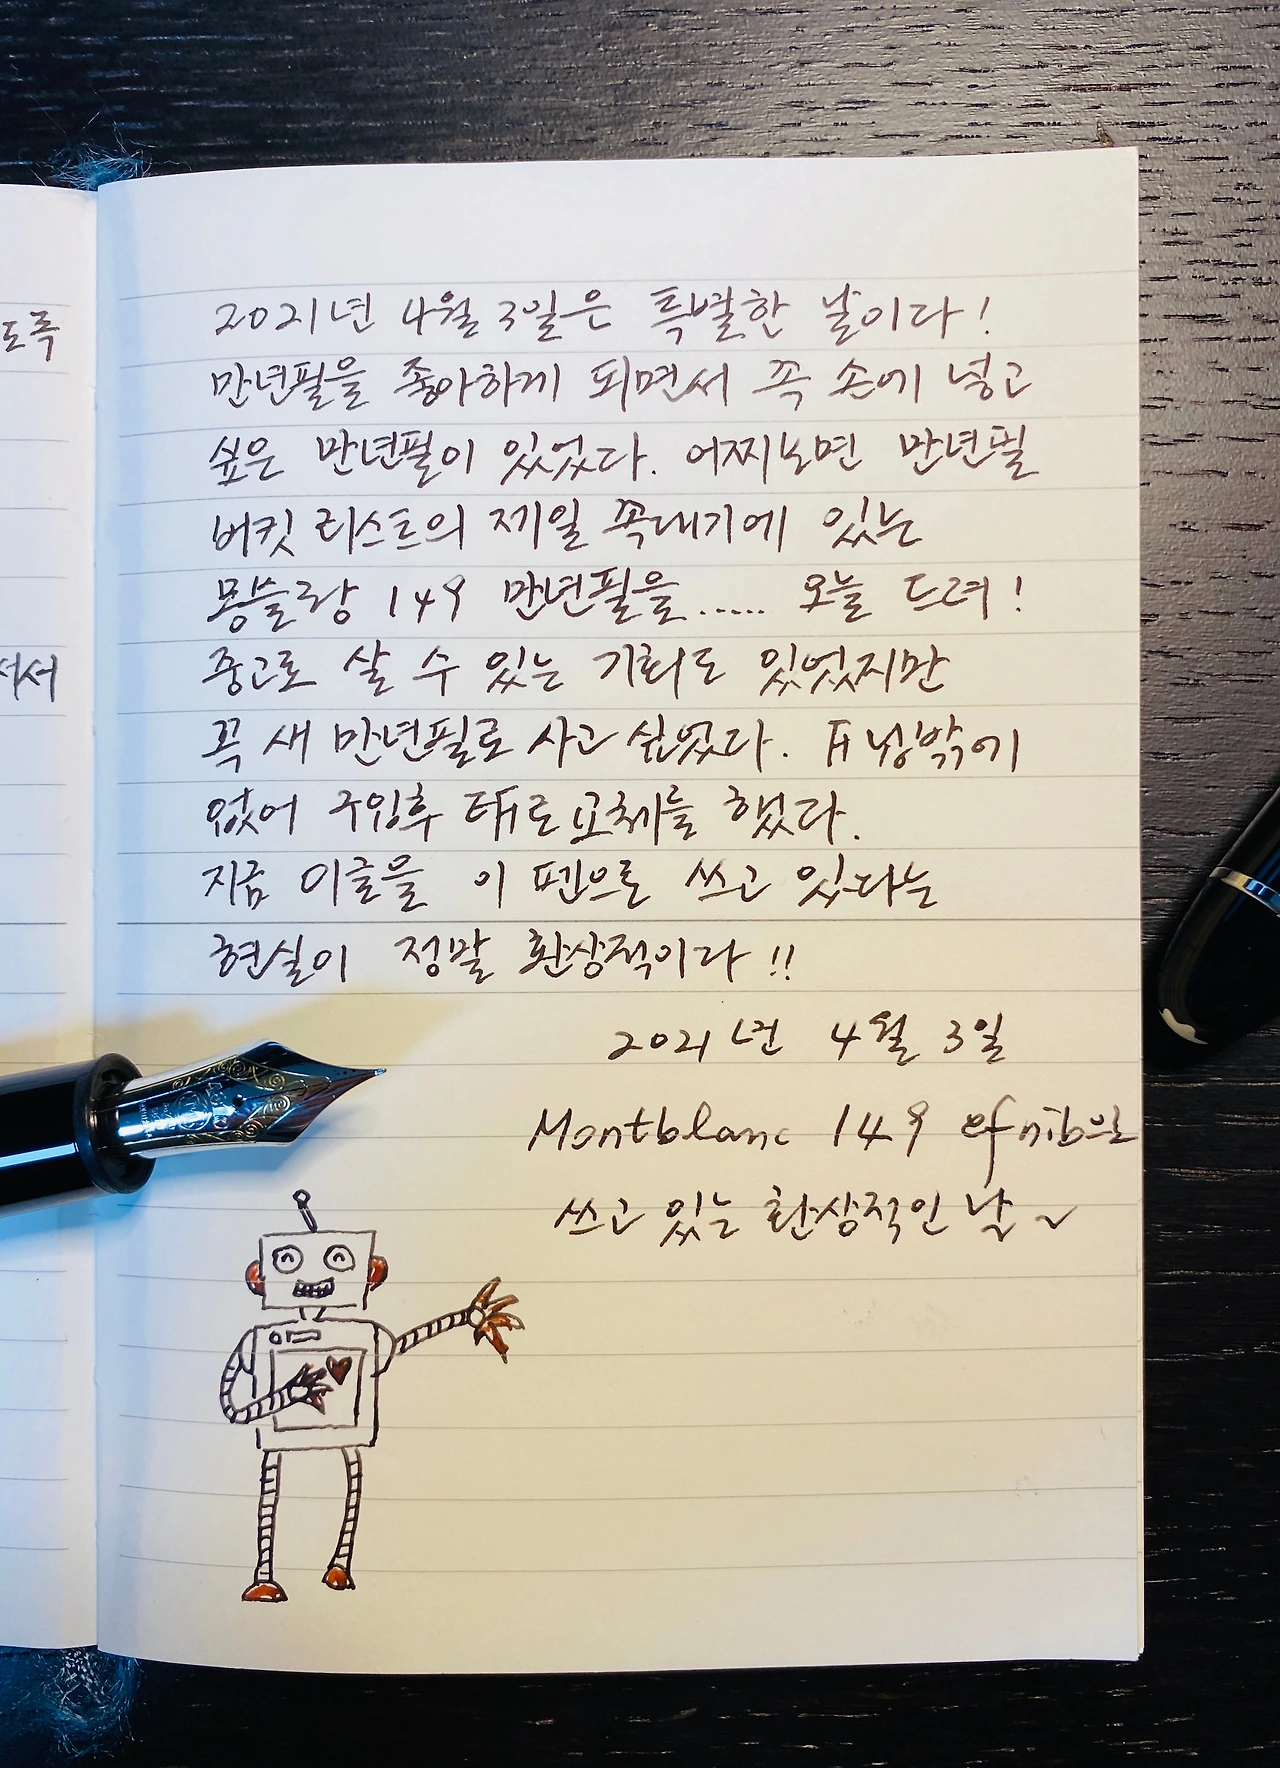 도록
셔서
2021년 4월 3일은 특별한 날이다!
만년필을 좋아하게 되면서 꼭 손에 넣고
싶은 만년필이 있었다. 어찌보면 만년필
버킷 리스트의 제일 꼭대기에 있는
몽블랑 149 만년필을..... 오늘 드려!
중고로 살 수 있는 기회도 있었지만
꼭 새 만년필로 사고 싶었다. F닙밖에
없어 구입후 EF로 교체를 했다.
지금 이글을 이 펜으로 쓰고 있다는
현실이 정말 환상적이다!!
2021년 4월 3일
Montblanc 149 ef nib으로
쓰고 있는 환상적인 날~